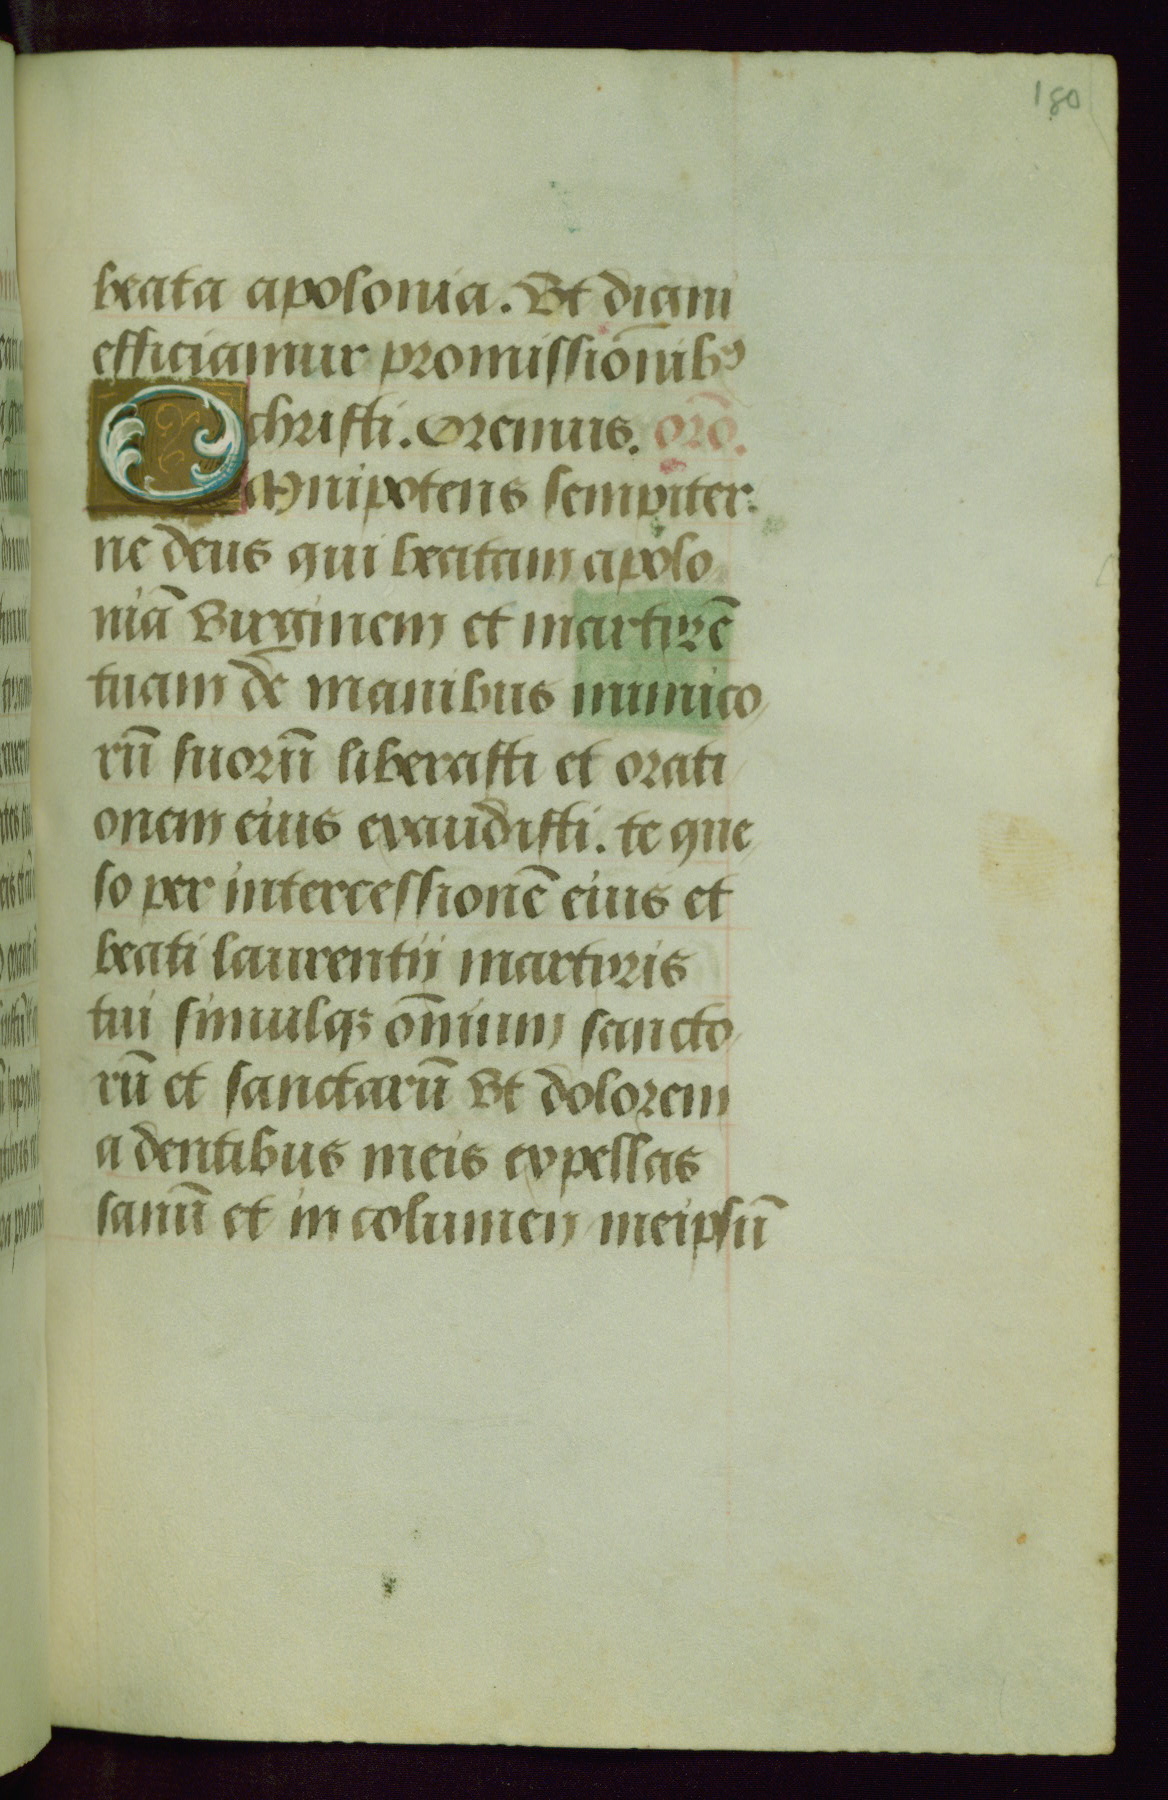 180
beata apolonia. Vt digni
efficiamur promissio̅nibꝰ
christi. Oremus. oro̅.
Omnipotens sempiter
ne deus qui beatam apolo
nia̅ Virginem et martire̅
tuam de̅ manibus inimico
ru̅ suoru̅ liberasti et orati
onem eius exaudisti. te que
so per intercessione̅ eius et
beati laurentii martyris
tui simulqꝫ om̅ium sancto
ru̅ et sanctaru̅ Vt dolorem
a dentibus meis expellas
sanu̅ et in columen meipsu̅